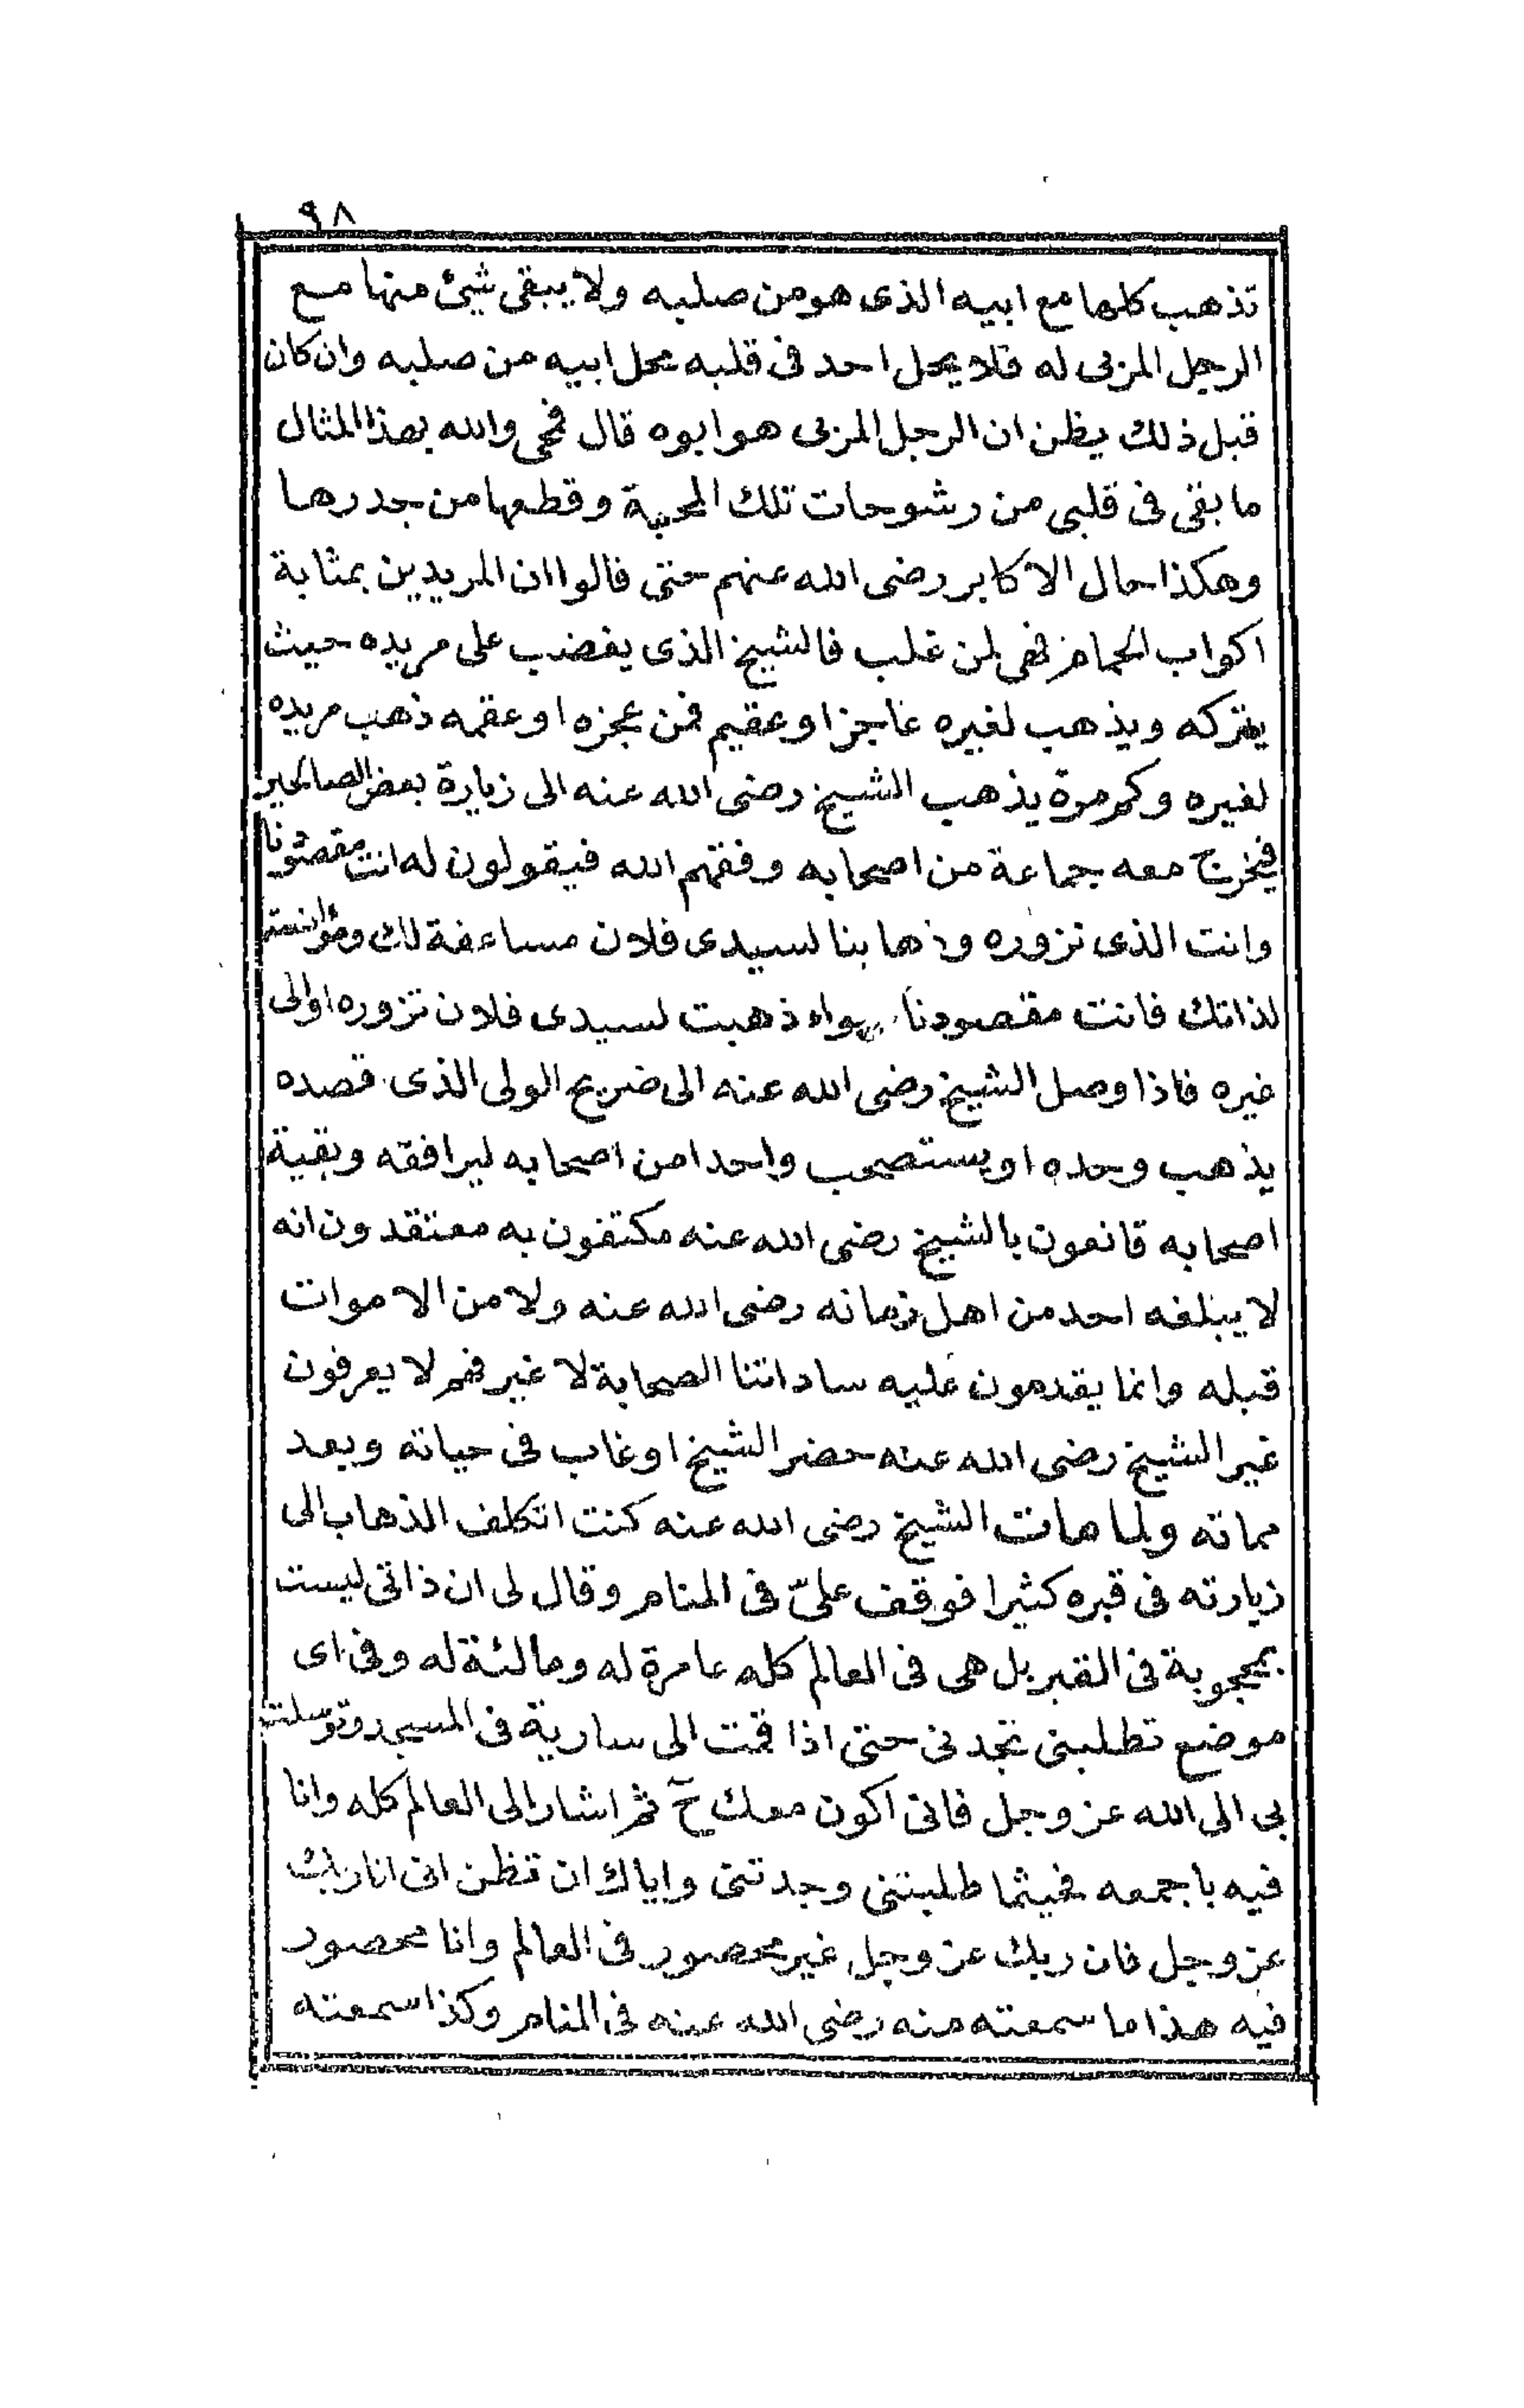 ٩٨
تذهب كلها مع ابيه الذى هو من صلبه ولا يبقى شيئ منها مع
الرجل المربى له فلا يحل احد فى قلبه محل ابيه من صلبه وان كان
قبل ذلك يظن ان الرجل المربى هو ابوه قال فمحى والله بهذا المثال
ما بقى فى قلبى من رشوحات تلك المحبة وقطعها من جدرها
وهكذا حال الاكابر رضى الله عنهم حتى قالوا ان المريدين بمثابة
اكواب الحمام فهى لمن غلب فالشيخ الذى يغضب على مريده حيث
يتركه ويذهب لغيره عاجز او عقيم فمن عجزه او عقمه ذهب مريده
لغيره وكم مرة يذهب الشيخ رضى الله عنه الى زيارة بعض الصالحين
فيخرج معه جماعة من اصحابه وفقهم الله فيقولون له انت مقصودنا
وانت الذى نزوره وذهابنا لسيدى فلان مساعفة لك ومؤانسة
لذاتك فانت مقصودنا سواء ذهبت لسيدى فلان تزوره او الى
غيره فاذا وصل الشيخ رضى الله عنه الى ضريح الولى الذى قصده
يذهب وحده او يستصحب واحدا من اصحابه ليرافقه وبقية
اصحابه قانعون بالشيخ رضى الله عنه مكتفون به معتقدون انه
لا يبلغه احد من اهل زمانه رضى الله عنه ولا من الاموات
قبله وانما يقدمون عليه ساداتنا الصحابة لا غير فهم لا يعرفون
غير الشيخ رضى الله عنه حضر الشيخ او غاب فى حياته وبعد
مماته ولما مات الشيخ رضى الله عنه كنت اتكلف الذهاب الى
زيارته فى قبره كثيرا فوقف علىّ فى المنام وقال لى ان ذاتى ليست
بمحجوبة فى القبر بل هى فى العالم كله عامرة له ومالئة له وفى اى
موضع تطلبنى تجدنى حتى اذا قمت الى سارية فى المسجد وتوسلت
بى الى الله عز وجل فانى اكون معك ح ثم اشار الى العالم كله وانا
فيه باجمعه فحيثما طلبتنى وجدتنى واياك ان تظن انى انا ربك
عز وجل فان ربك عز وجل غير محصور فى العالم وانا محصور
فيه هذا ما سمعته منه رضى الله عنه فى المنام وكذا سمعته